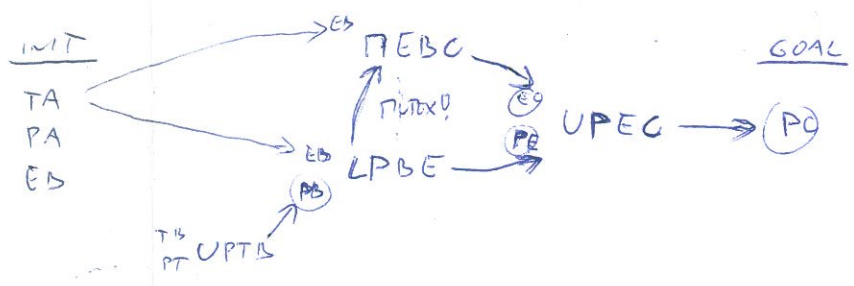 INIT
TA
PA
EB
EB MEBC
MUTEX!
EB
PB
LPBE
TB
PT
UPTB
EC
PE
UPEC
GOAL
PC